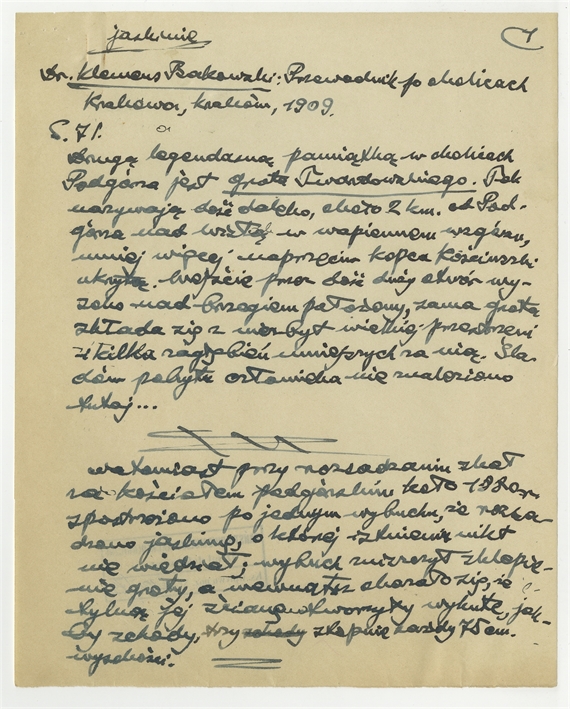 jaskinie
1
Dr. Klemens Bąkowski: Przewodnik po okolicach
Krakowa, Kraków, 1909.
S. 71.
Drugą legendarną pamiątką w okolicach
Podgórza jest grota Twardowskiego. Tak
nazywają dość daleko, około 2 km. od Pod-
górza nad Wisłą w wapiennem wzgórzu,
mniej więcej naprzeciw kopca Kościuszki
ukrytą. Wejście przez dość duży otwór wy-
soko nad brzegiem położony, sama grota
składa się z niezbyt wielkiej przestrzeni
i kilka zagłębień mniejszych za nią. Śla-
dów pobytu człowieka nie znaleziono
tutaj...
natomiast przy rozsadzaniu skał
za kościołem podgórskim koło 1880 r.
spostrzeżono po jednym wybuchu, że rozsa-
dzono jaskinię, o której istnieniu nikt
nie wiedział; wybuch zniszczył sklepie-
nie groty, a wewnątrz okazało się, że
tylną jej ścianę tworzyły wykute, jak-
by schody, trzy schody stopnie każdy 75 cm.
wysokości.